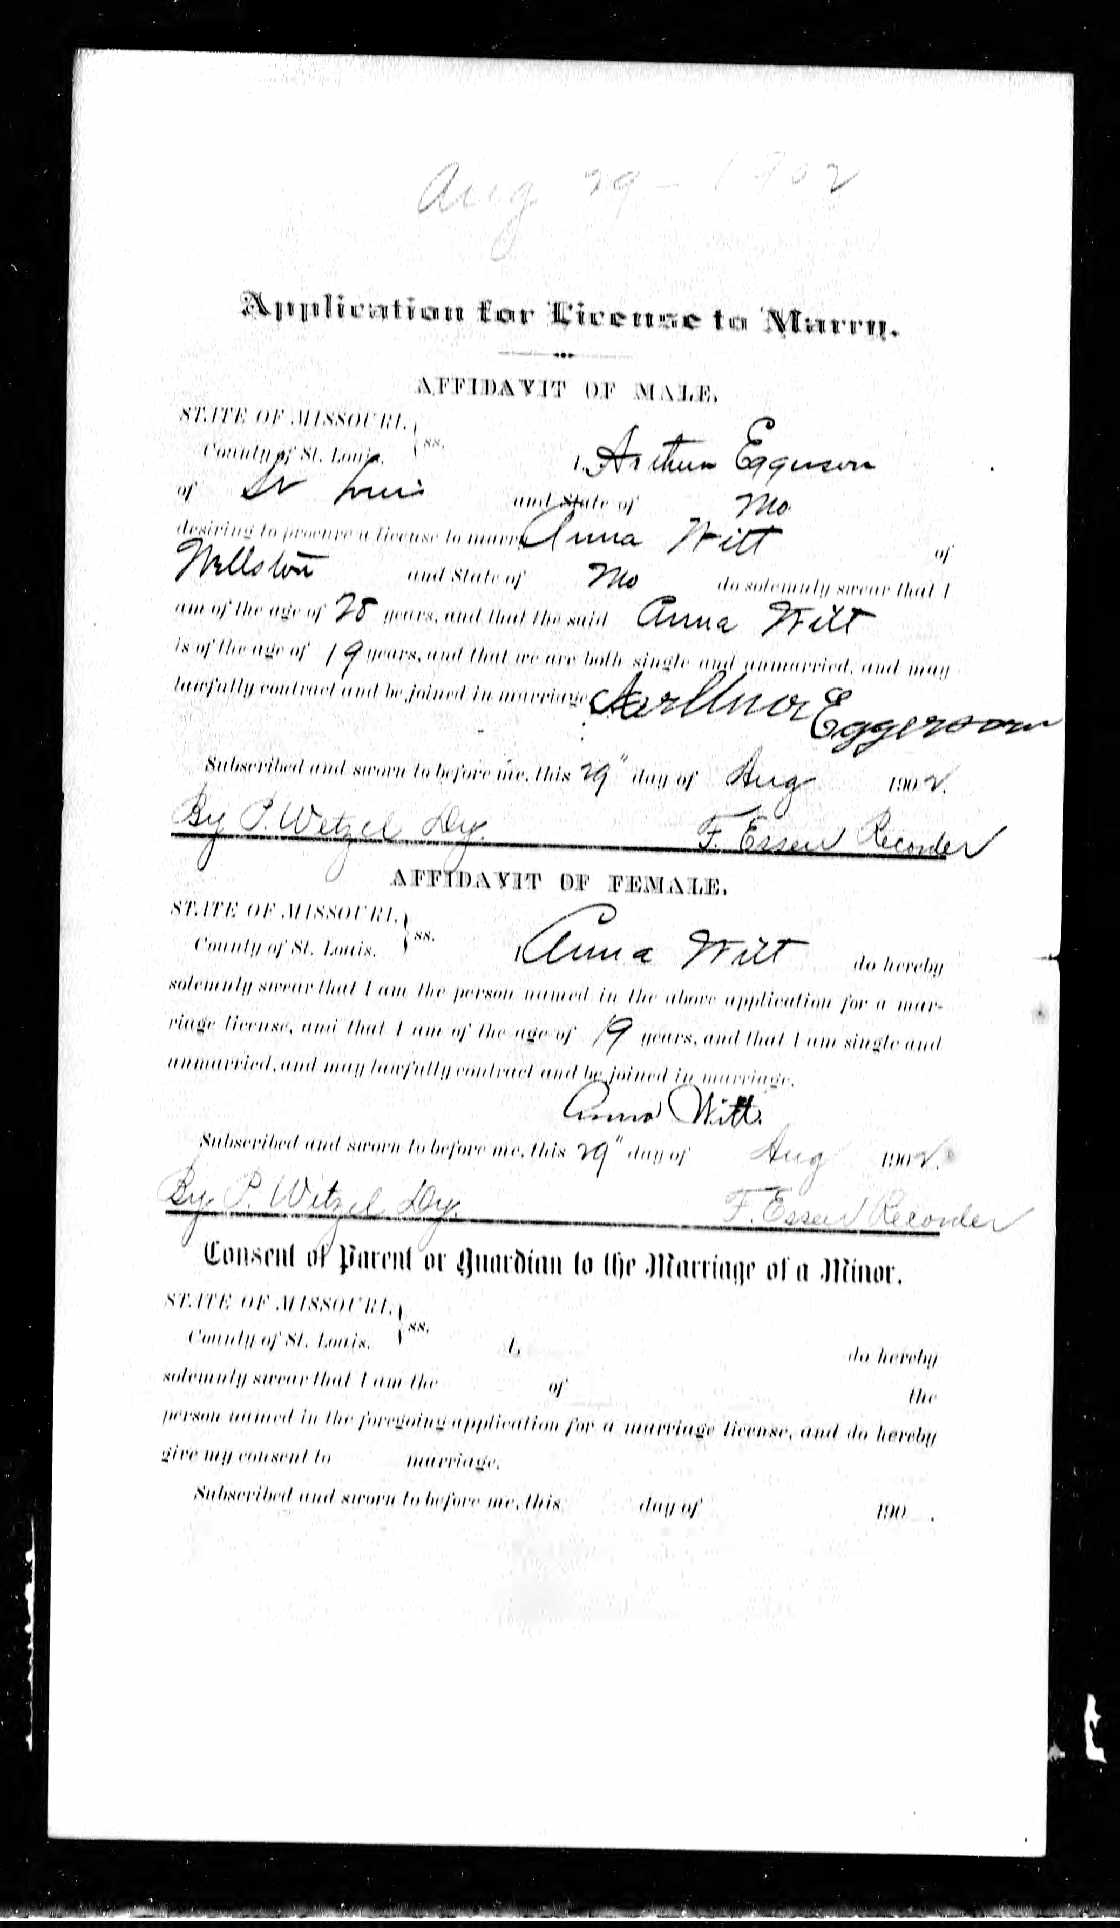 Aug 29 - 1902
Application for License to Marry.
AFFIDAVIT OF MALE.
STATE OF MISSOURI, } ss.
County of St. Louis.
I, Arthur Eggerson
of St Louis and State of Mo
desiring to procure a license to marry Anna Witt of
Wellston and State of Mo do solemnly swear that I
am of the age of years, and that the said Anna Witt
is of the age of 19 years, and that we are both single and unmarried, and may
lawfully contract and be joined in marriage.
Arthur Eggerson
Subscribed and sworn to before me, this 29" day of Aug 1902.
By P. Wetzel Dy. F. Essen Recorder
AFFIDAVIT OF FEMALE.
STATE OF MISSOURI, } ss.
County of St. Louis.
I, Anna Witt do hereby
solemnly swear that I am the person named in the above application for a mar-
riage license, and that I am of the age of 19 years, and that I am single and
unmarried, and may lawfully contract and be joined in marriage.
Anna Witt.
Subscribed and sworn to before me, this 29" day of Aug 1902.
By P. Wetzel Dy. F. Essen Recorder
Consent of Parent or Guardian to the Marriage of a Minor.
STATE OF MISSOURI, } ss.
County of St. Louis.
I, do hereby
solemnly swear that I am the of the
person named in the foregoing application for a marriage license, and do hereby
give my consent to marriage.
Subscribed and sworn to before me, this day of 190 .